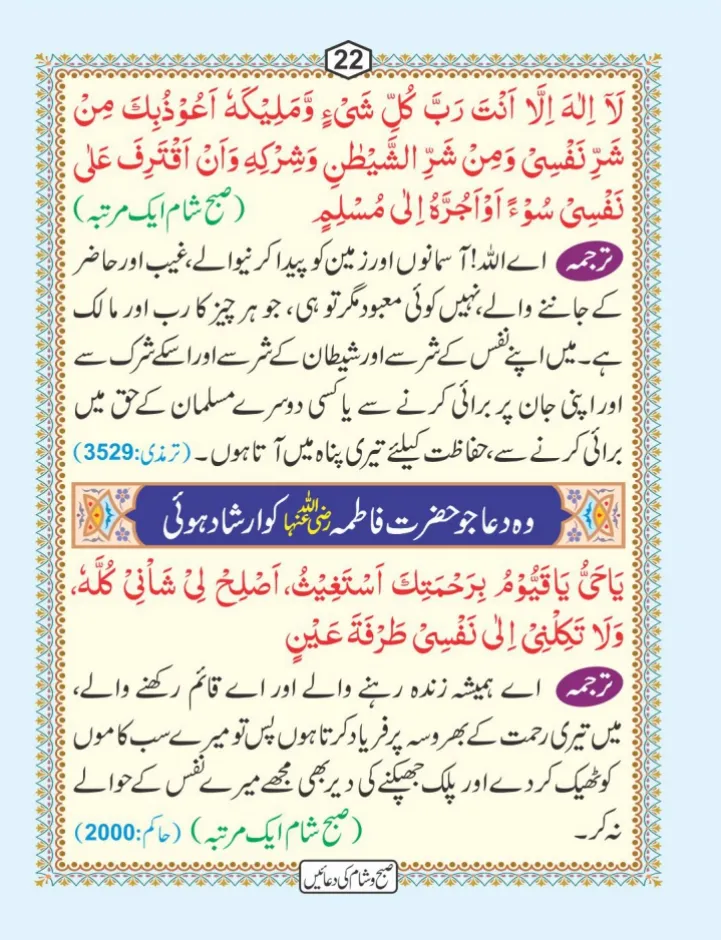 22
لَآ اِلٰهَ اِلَّا اَنْتَ رَبَّ كُلِّ شَیْءٍ وَّمَلِيْكَهٗ اَعُوْذُبِكَ مِنْ
شَرِّ نَفْسِیْ وَمِنْ شَرِّ الشَّيْطٰنِ وَشِرْكِهٖ وَاَنْ اَقْتَرِفَ عَلٰی
نَفْسِیْ سُوْءًا اَوْ اَجُرَّهٗ اِلٰی مُسْلِمٍ (صبح شام ایک مرتبہ)
ترجمہ اے اللہ! آسمانوں اور زمین کو پیدا کرنیوالے، غیب اور حاضر
کے جاننے والے، نہیں کوئی معبود مگر تو ہی، جو ہر چیز کا رب اور مالک
ہے۔ میں اپنے نفس کے شر سے اور شیطان کے شر سے اور اسکے شرک سے
اور اپنی جان پر برائی کرنے سے یا کسی دوسرے مسلمان کے حق میں
برائی کرنے سے، حفاظت کیلئے تیری پناہ میں آتا ہوں۔ (ترمذی:3529)
وہ دعا جو حضرت فاطمہ رضی اللہ عنہا کو ارشاد ہوئی
يَاحَیُّ يَاقَيُّوْمُ بِرَحْمَتِكَ اَسْتَغِيْثُ، اَصْلِحْ لِیْ شَاْنِیْ كُلَّهٗ،
وَلَا تَكِلْنِیْ اِلٰی نَفْسِیْ طَرْفَةَ عَيْنٍ
ترجمہ اے ہمیشہ زندہ رہنے والے اور اے قائم رکھنے والے،
میں تیری رحمت کے بھروسہ پر فریاد کرتا ہوں پس تو میرے سب کاموں
کو ٹھیک کر دے اور پلک جھپکنے کی دیر بھی مجھے میرے نفس کے حوالے
نہ کر۔ (صبح شام ایک مرتبہ) (حاکم:2000)
صبح و شام کی دعائیں